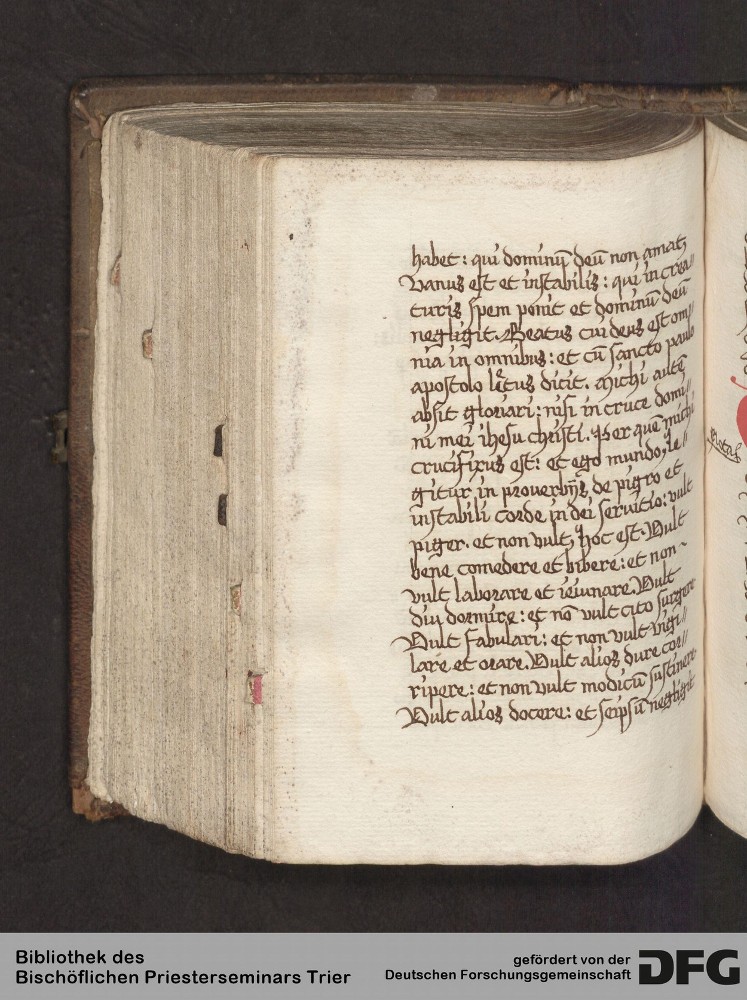 habet : qui dominū deū non amat,
Vanus est et instabilis : qui in crea//
turis spem ponit et dominū deū
negligit. Beatus cui deus est om//
nia in omnibus : et cū sancto paulo
apostolo lętus dicit. Michi autē
absit gloriari : nisi in cruce domi//
ni mei ihesu christi. Per quē michi
crucifixus est : et ego mundo, Le//
gitur in proverbijs de pigro et
instabili corde in dei servitio : vult
piger. et non vult, hoc est. Vult
bene comedere et bibere : et non -
vult laborare et ieiunare. Vult
diu dormire : et nō vult cito surgere
Vult fabulari : et non vult vigi//
lare et orare. Vult alios dure cor//
ripere : et non vult modicū sustinere
Vult alios docere : et seipsū negligit
Bibliothek des
Bischöflichen Priesterseminars Trier
gefördert von der
Deutschen Forschungsgemeinschaft
DFG